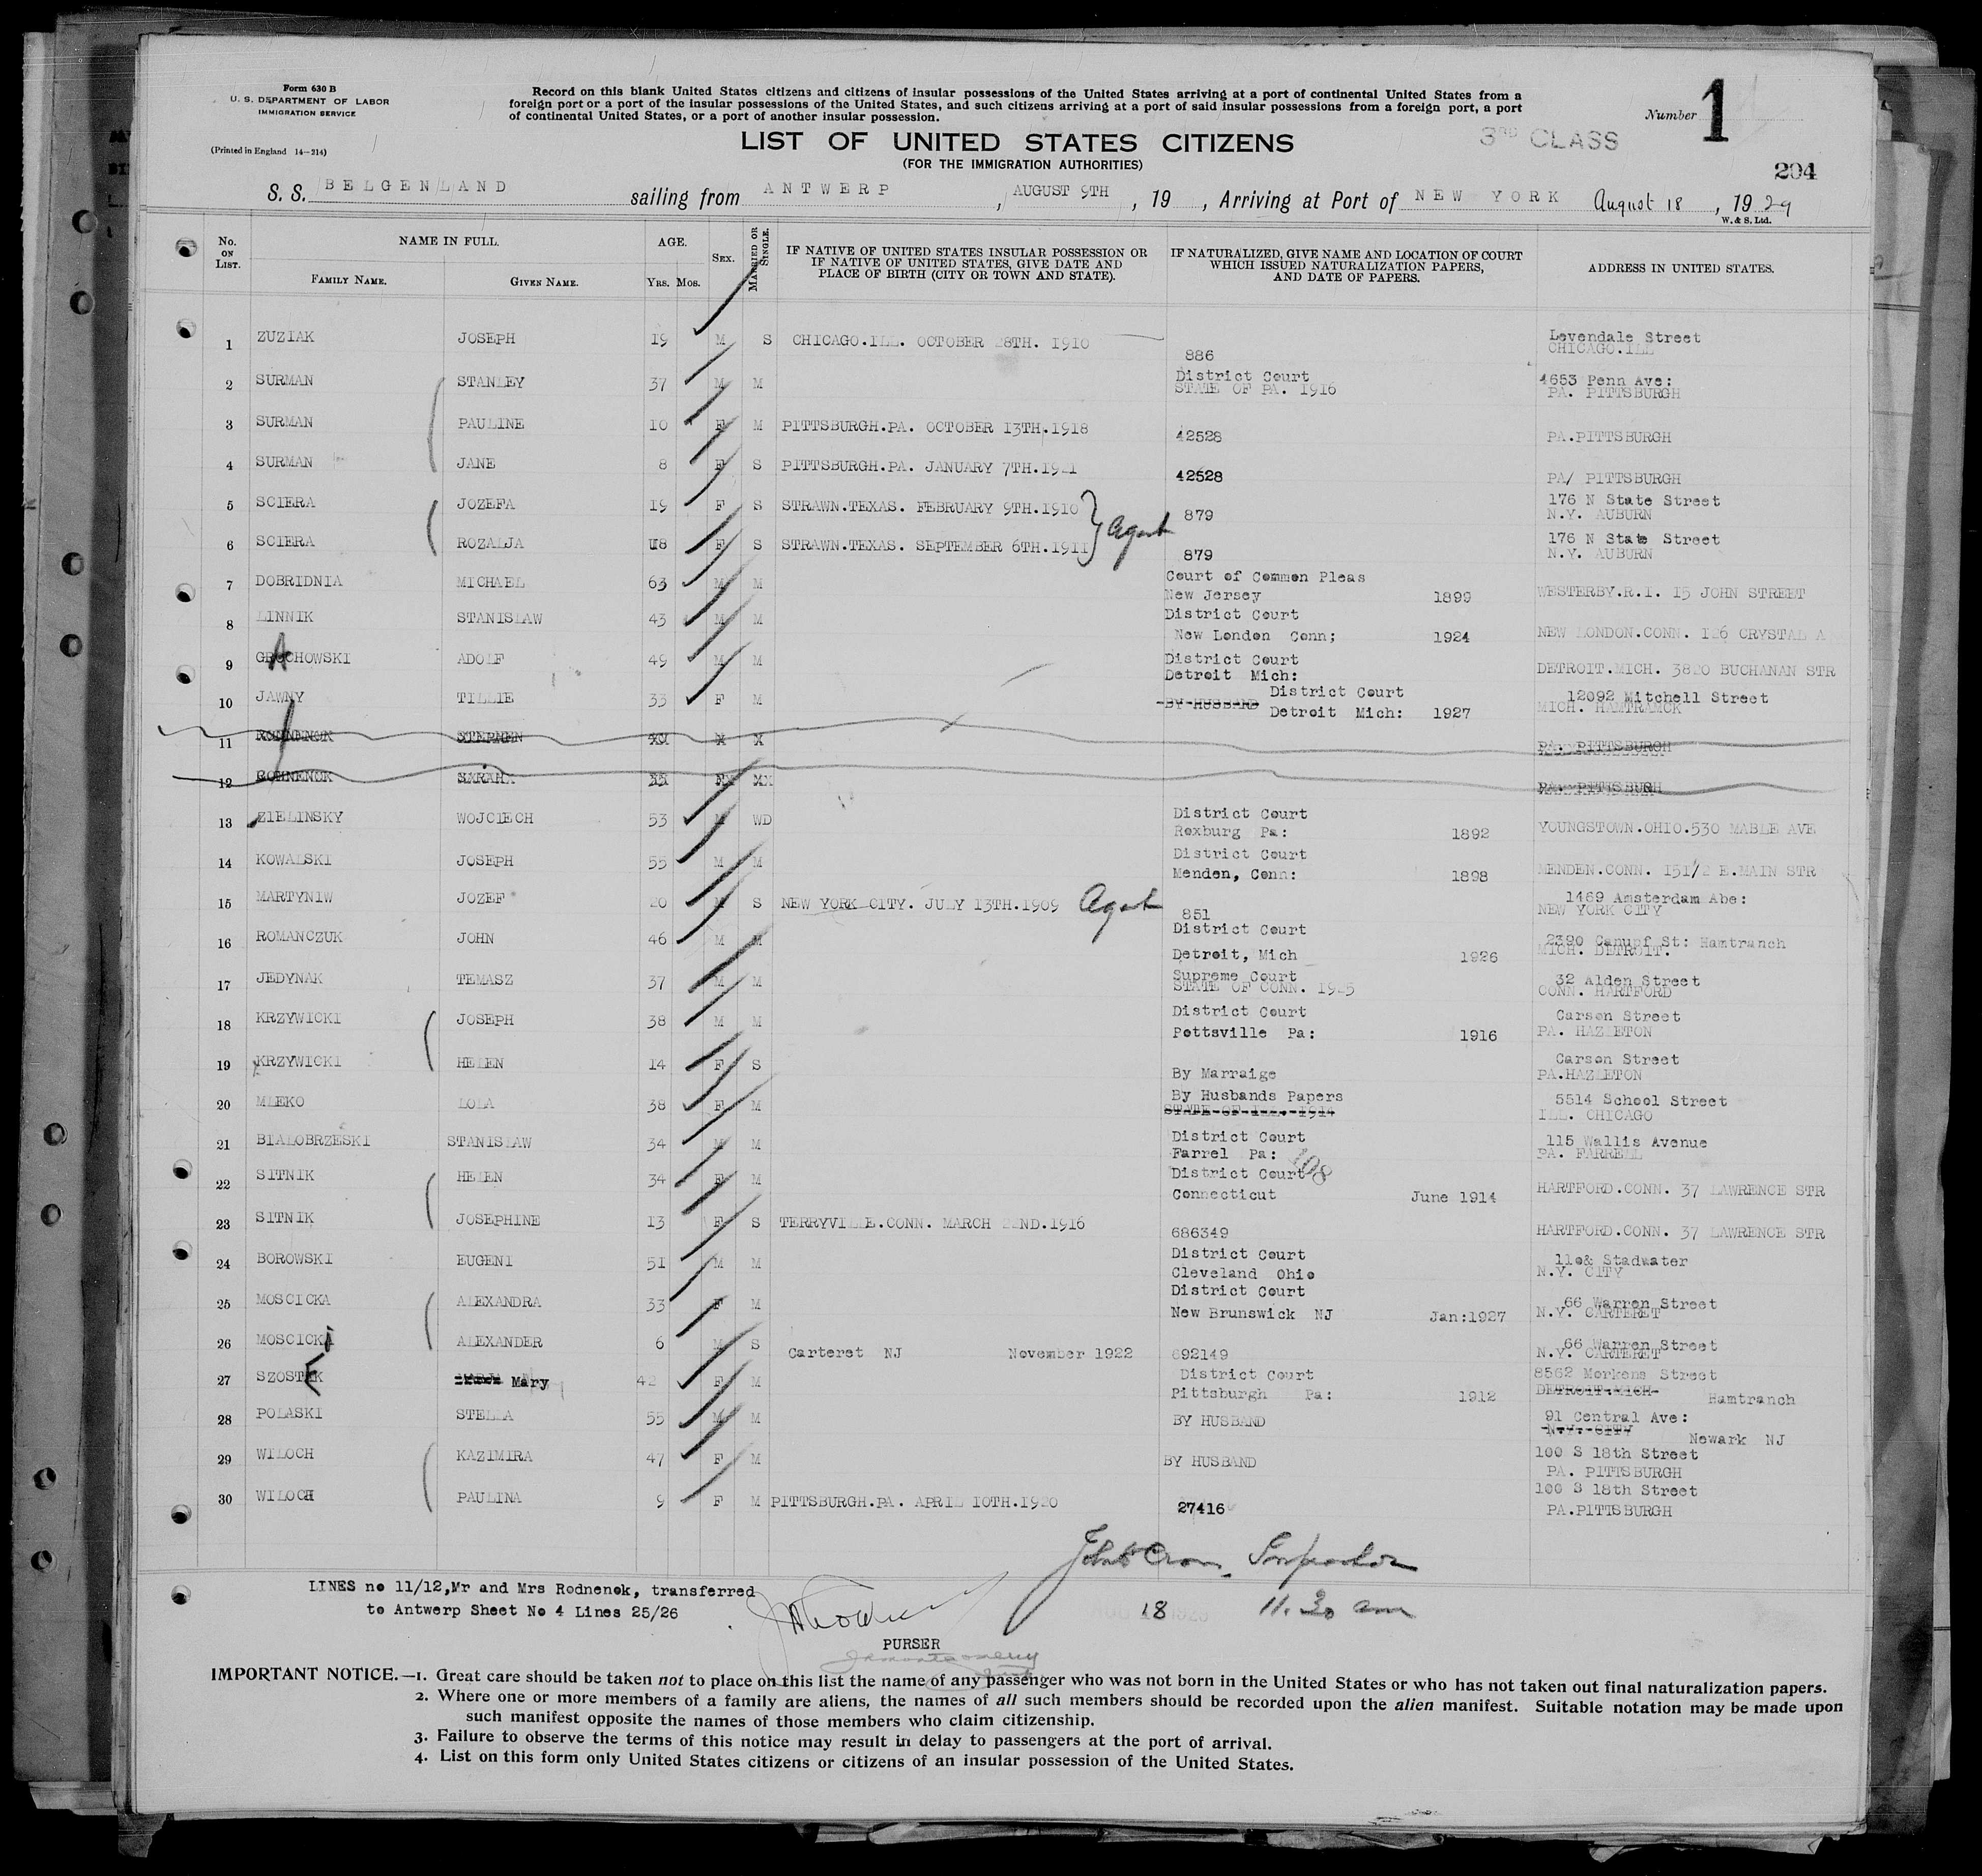 Form 630 B
U. S. DEPARTMENT OF LABOR
IMMIGRATION SERVICE
(Printed in England 14—214)
Record on this blank United States citizens and citizens of insular possessions of the United States arriving at a port of continental United States from a
foreign port or a port of the insular possessions of the United States, and such citizens arriving at a port of said insular possessions from a foreign port, a port
of continental United States, or a port of another insular possession.
Number 1
LIST OF UNITED STATES CITIZENS
3RD CLASS
(FOR THE IMMIGRATION AUTHORITIES)
204
S. S. BELGENLAND sailing from ANTWERP, AUGUST 9TH, 19 , Arriving at Port of NEW YORK August 18, 1929
W. & S. Ltd.
No. ON LIST. NAME IN FULL. FAMILY NAME. GIVEN NAME. AGE. YRS. MOS. SEX. MARRIED OR SINGLE. IF NATIVE OF UNITED STATES INSULAR POSSESSION OR IF NATIVE OF UNITED STATES, GIVE DATE AND PLACE OF BIRTH (CITY OR TOWN AND STATE). IF NATURALIZED, GIVE NAME AND LOCATION OF COURT WHICH ISSUED NATURALIZATION PAPERS, AND DATE OF PAPERS. ADDRESS IN UNITED STATES.
1 ZUZIAK JOSEPH 19 M S CHICAGO.ILL. OCTOBER 28TH. 1910 886 Levendale Street CHICAGO.ILL
2 SURMAN STANLEY 37 M M District Court STATE OF PA. 1916 4653 Penn Ave: PA. PITTSBURGH
3 SURMAN PAULINE 10 F M PITTSBURGH.PA. OCTOBER 13TH.1918 42528 PA.PITTSBURGH
4 SURMAN JANE 8 F S PITTSBURGH.PA. JANUARY 7TH.1921 42528 PA/ PITTSBURGH
5 SCIERA JOZEFA 19 F S STRAWN.TEXAS. FEBRUARY 9TH.1910 879 176 N State Street N.Y. AUBURN
6 SCIERA ROZALJA 18 F S STRAWN.TEXAS. SEPTEMBER 6TH.1911 879 176 N State Street N.Y. AUBURN
7 DOBRIDNIA MICHAEL 63 M M Court of Common Pleas New Jersey 1899 WESTERBY.R.I. 15 JOHN STREET
8 LINNIK STANISLAW 43 M M District Court New London Conn; 1924 NEW LONDON.CONN. 126 CRYSTAL A
9 GROCHOWSKI ADOLF 49 M M District Court Detroit Mich: DETROIT.MICH. 3820 BUCHANAN STR
10 JAWNY TILLIE 33 F M BY HUSBAND District Court Detroit Mich: 1927 12092 Mitchell Street MICH. HAMTRAMCK
11 RODNENOK STEPHEN X X PA. PITTSBURGH
12 SARAH PA. PITTSBUGH
13 ZIELINSKY WOJCIECH 53 M WD District Court Roxburg Pa: 1892 YOUNGSTOWN.OHIO.530 MABLE AVE
14 KOWALSKI JOSEPH 55 M M District Court Menden, Conn: 1898 MENDEN.CONN. 151/2 E.MAIN STR
15 MARTYNIW JOZEF 20 M S NEW YORK CITY. JULY 13TH.1909 851 1469 Amsterdam Abe: NEW YORK CITY
16 ROMANCZUK JOHN 46 M M District Court Detroit, Mich 1926 2390 Canupf St: Hamtranch MICH. DETROIT.
17 JEDYNAK TEMASZ 37 M M Supreme Court STATE OF CONN. 1925 32 Alden Street CONN. HARTFORD
18 KRZYWICKI JOSEPH 38 M M District Court Pottsville Pa: 1916 Carson Street PA. HAZLETON
19 KRZYWICKI HELEN 14 F S By Marraige Carson Street PA.HAZLETON
20 MLEKO LOLA 38 F M By Husbands Papers STATE OF ILL. 1914 5514 School Street ILL. CHICAGO
21 BIALOBRZESKI STANISLAW 34 M M District Court Farrel Pa: 115 Wallis Avenue PA. FARRELL
22 SITNIK HELEN 34 F M District Court Connecticut June 1914 HARTFORD.CONN. 37 LAWRENCE STR
23 SITNIK JOSEPHINE 13 F S TERRYVILLE.CONN. MARCH 22ND.1916 686349 HARTFORD.CONN. 37 LAWRENCE STR
24 BOROWSKI EUGENI 51 M M District Court Cleveland Ohio Stadwater N.Y. CITY
25 MOSCICKA ALEXANDRA 33 F M District Court New Brunswick NJ Jan:1927 66 Warren Street N.Y. CARTERET
26 MOSCICKi ALEXANDER 6 M S Carteret NJ November 1922 692149 66 Warren Street N.Y. CARTERET
27 SZOSTEK Mary 42 F M District Court Pittsburgh Pa: 1912 8562 Morkens Street DETROIT.MICH Hamtranch
28 POLASKI STELLA 55 M M BY HUSBAND 91 Central Ave: N.Y. CITY Newark NJ
29 WILOCH KAZIMIRA 47 F M BY HUSBAND 100 S 18th Street PA. PITTSBURGH
30 WILOCH PAULINA 9 F M PITTSBURGH.PA. APRIL 10TH.1920 27416 100 S 18th Street PA.PITTSBURGH
LINES no 11/12,Mr and Mrs Rodnenok, transferred
to Antwerp Sheet No 4 Lines 25/26
18 11.30 am
PURSER
IMPORTANT NOTICE.—1. Great care should be taken not to place on this list the name of any passenger who was not born in the United States or who has not taken out final naturalization papers.
2. Where one or more members of a family are aliens, the names of all such members should be recorded upon the alien manifest. Suitable notation may be made upon
such manifest opposite the names of those members who claim citizenship.
3. Failure to observe the terms of this notice may result in delay to passengers at the port of arrival.
4. List on this form only United States citizens or citizens of an insular possession of the United States.